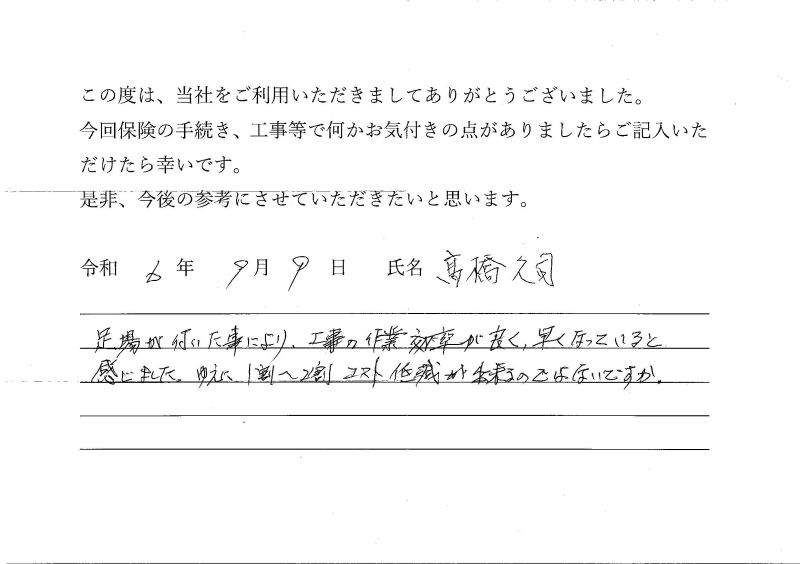 この度は、当社をご利用いただきましてありがとうございました。
今回保険の手続き、工事等で何かお気付きの点がありましたらご記入いた
だけたら幸いです。
是非、今後の参考にさせていただきたいと思います。
令和 6 年 9月 9 日 氏名 高橋久司
足場が付いた事により、工事の作業効率が良く、早くなっていると
感じました。ゆえに1割～2割コスト低減が出来るのではないですか。